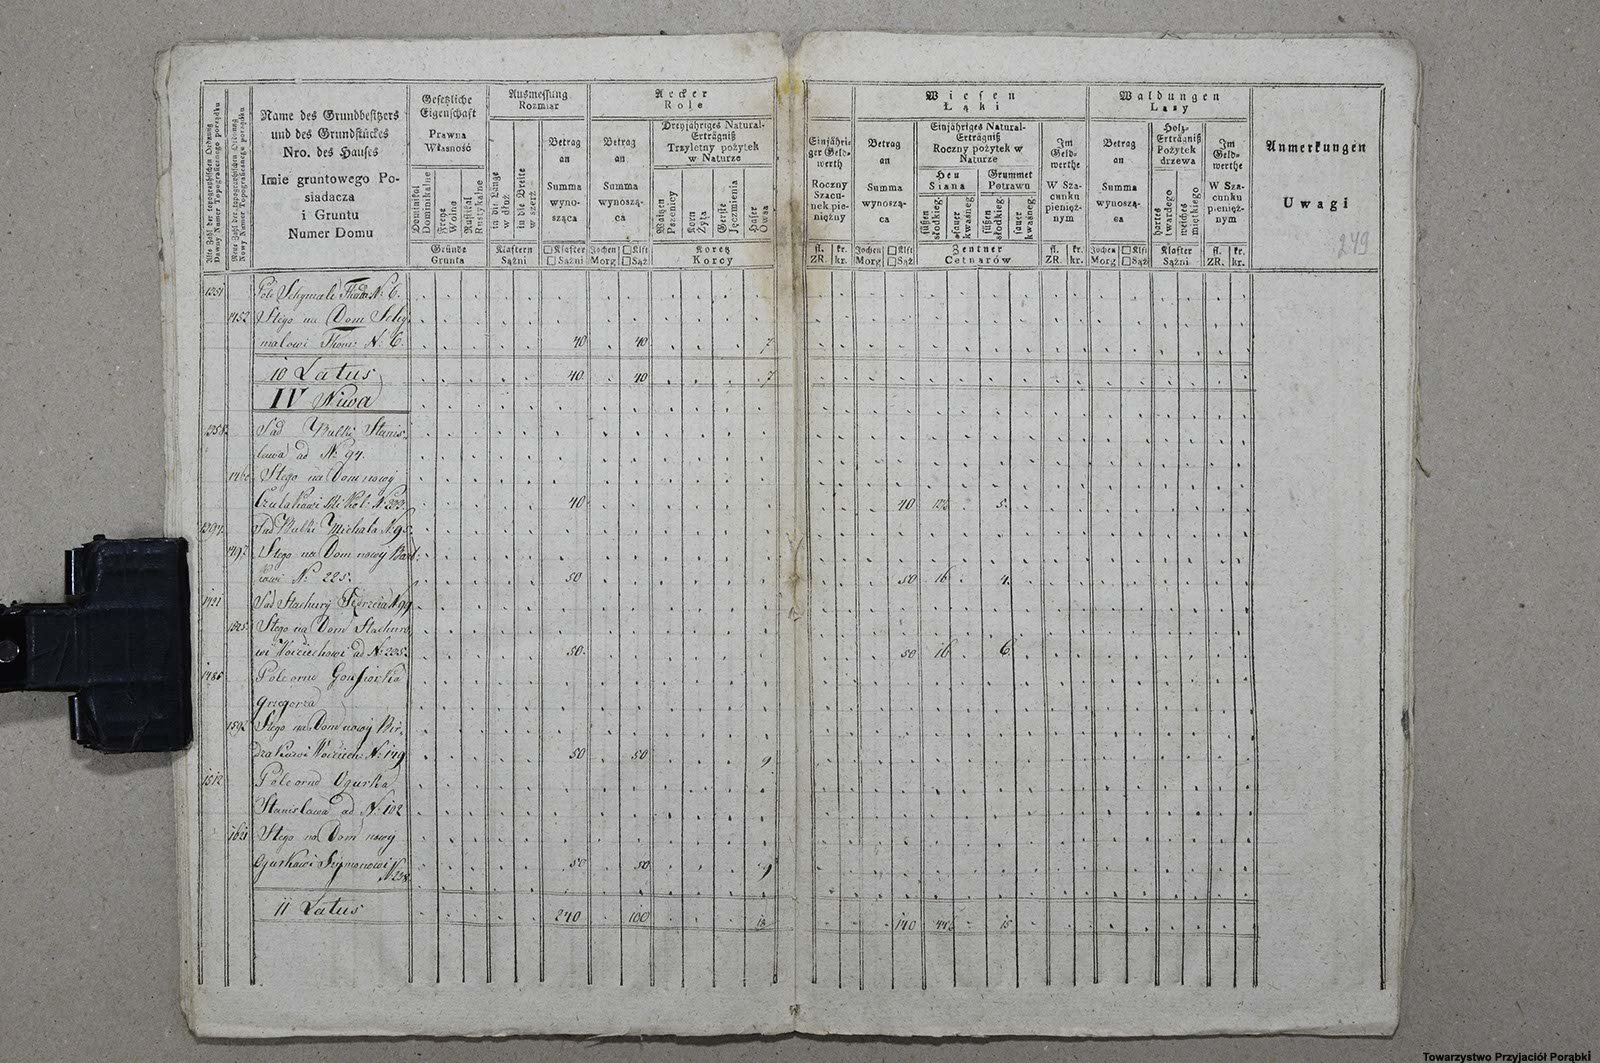 Alte Zahl der topographischen Ordnung
Dawny Numer Topograficznego porządku
Neue Zahl der topographischen Ordnung
Nowy Numer Topograficznego porządku
Name des Grundbesitzers
und des Grundstückes
Nro. des Hauses
Imie gruntowego Po-
siadacza
i Gruntu
Numer Domu
Gesetzliche
Eigenschaft
Prawna
Własność
Dominikal
Dominikalne
Freye
Wolne
Rustikal
Rustykalne
Gründe
Grunta
Ausmessung
Rozmiar
in die Länge
w dłuż
in die Breite
w szerż
Klaftern
Sążni
Betrag
an
Summa
wyno-
sząca
□ Klafter
□ Sążni
Aecker
Role
Betrag
an
Summa
wynoszą-
ca
Jochen □ Klft
Morg □ Sąż
Dreyjähriges Natural-
Erträgniß
Trzyletny pożytek
w Naturze
Waitzen
Pszenicy
Korn
Żyta
Gerste
Jęczmienia
Hafer
Owsa
Koretz
Korcy
Einjähri-
ger Geld-
werth
Roczny
Szacu-
nek pie-
niężny
fl. kr.
ZR. kr.
Wiesen
Łąki
Betrag
an
Summa
wynoszą-
ca
Jochen □ Klft
Morg □ Sąż
Einjähriges Natural-
Erträgniß
Roczny pożytek w
Naturze
Heu
Siana
Grummet
Potrawu
süßen
słodkieg.
sauer
kwaśneg.
süßen
słodkieg.
sauer
kwaśneg.
Zentner
Cetnarów
Im
Geld-
werthe
W Sza-
cunku
pienięż-
nym
fl. kr.
ZR. kr.
Waldungen
Lasy
Betrag
an
Summa
wynoszą-
ca
Jochen □ Klft
Morg □ Sąż
Holz-
Erträgniß
Pożytek
drzewa
hartes
twardego
weiches
miętkiego
Klafter
Sążni
Im
Geld-
werthe
W Sza-
cunku
pienięż-
nym
fl. kr.
ZR. kr.
Anmerkungen
Uwagi
249
N: 6.
1452 Ztego na Dom
N: 6. 40 40 7
10 Latus 40 40 7
IV Niwa
Sad Bulki Stanis-
lawa ad N: 94.
Ztego na Dom nowy
40 40 5
Sad Bulki Michala N 95.
Ztego na Dom nowy
N: 225. 50 50 16 4
Sad Stachury N 99
Ztego na Dom Stachuro
wi Woiciechowi ad N: 50 50 16 6
Pole orne
Grzegorza
Ztego na Dom nowy
Woiciech: N: 149 50 50 9
1512 Pole orne Ogurka
Stanislawa ad N: 102
1621 Ztego na Dom nowy
Ogurkowi Szymonowi 50 50 9
11 Latus 240 100 18 140 15
Towarzystwo Przyjaciół Porąbki